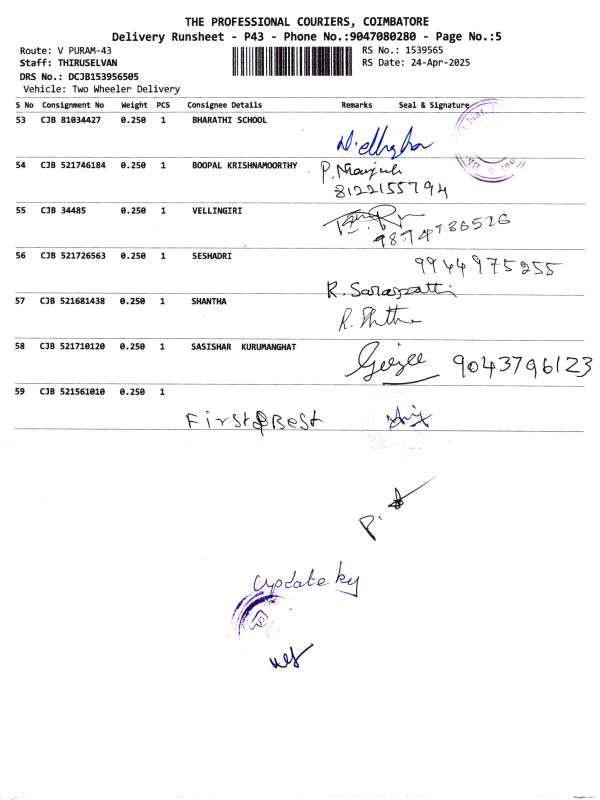 THE PROFESSIONAL COURIERS, COIMBATORE
Delivery Runsheet - P43 - Phone No.:9047080280 - Page No.:5
Route: V PURAM-43 RS No.: 1539565
Staff: THIRUSELVAN RS Date: 24-Apr-2025
DRS No.: DCJB153956505
Vehicle: Two Wheeler Delivery
S No Consignment No Weight PCS Consignee Details Remarks Seal & Signature
53 CJB 81034427 0.250 1 BHARATHI SCHOOL
54 CJB 521746184 0.250 1 BOOPAL KRISHNAMOORTHY
8122155794
55 CJB 34485 0.250 1 VELLINGIRI
9894736526
56 CJB 521726563 0.250 1 SESHADRI 9944975255
57 CJB 521681438 0.250 1 SHANTHA
58 CJB 521710120 0.250 1 SASISHAR KURUMANGHAT 9043796123
59 CJB 521561010 0.250 1
First & Best
update by